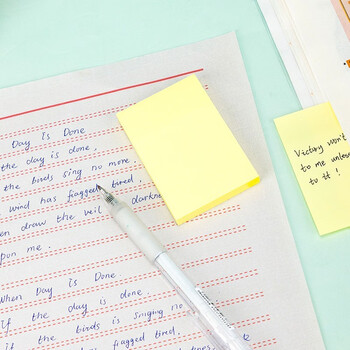 Day Is Done
the day is done.
the birds sing no more
wind has fagged tired.
draw the veil darkn
pon me.
When Day is Done
If the day is done.
if the birds is singing no
fagged tired,
Victory won't
to me unless
to it!